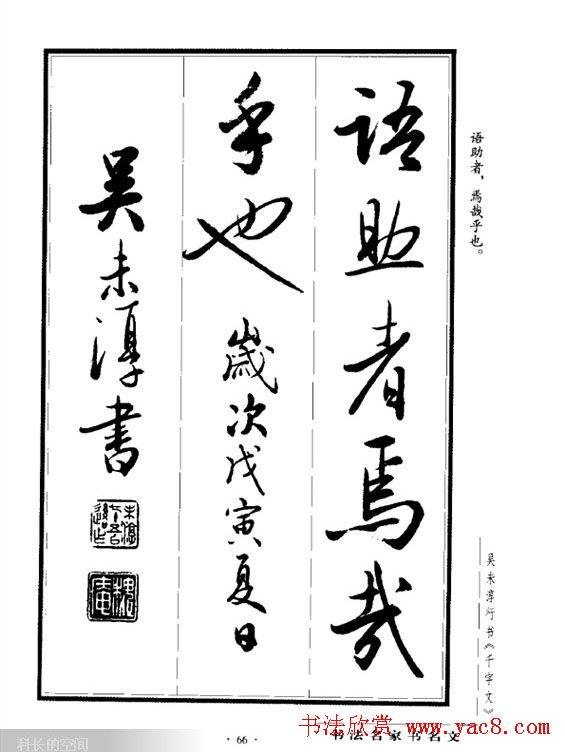 语助者焉哉
乎也 歲次戊寅夏日
吴未淳書
语助者，焉哉乎也。
吴未淳行书《千字文》
· 66 ·
书法名家书名文
书法欣赏 www.yac8.com
科长的空间